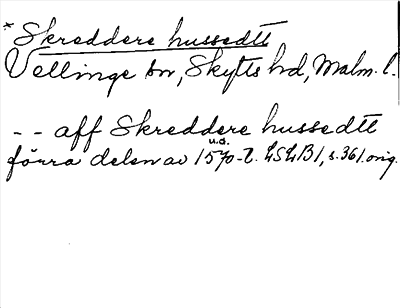 * Skreddere hussedtt
Vellinge sn, Skytts hrd, Malm. l.
-- aff Skreddere hussedtt
u.d.
förra delen av 1570-t. LSLB1, s. 361. orig.